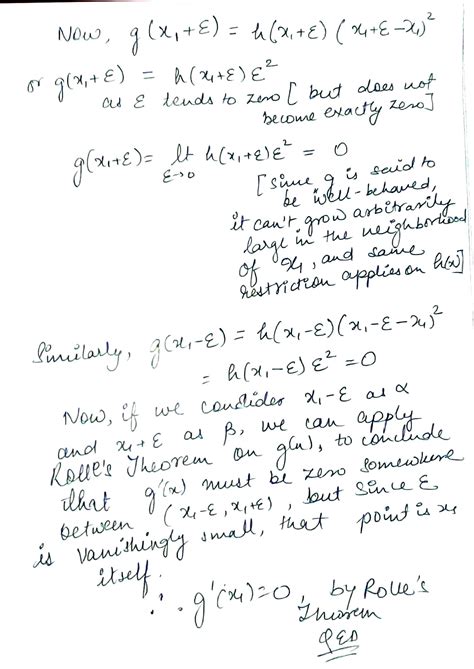 Now, g(x₁+ε) = h(x₁+ε) (x₁+ε-x₁)²
or g(x₁+ε) = h(x₁+ε) ε²
as ε tends to zero [ but does not
become exactly zero]
g(x₁+ε) = lt h(x₁+ε) ε² = 0
ε→0
[since g is said to
be well-behaved,
it can't grow arbitrarily
large in the neighborhood
of x₁, and same
restriction applies on h(x)]
Similarly, g(x₁-ε) = h(x₁-ε)(x₁-ε-x₁)²
= h(x₁-ε) ε² = 0
Now, if we consider x₁-ε as α
and x₁+ε as β, we can apply
Rolle's Theorem on g(x), to conclude
that g'(x) must be zero somewhere
between (x₁-ε, x₁+ε), but since ε
is vanishingly small, that point is x₁
itself.
∴ g'(x₁)=0, by Rolle's
Theorem
QED